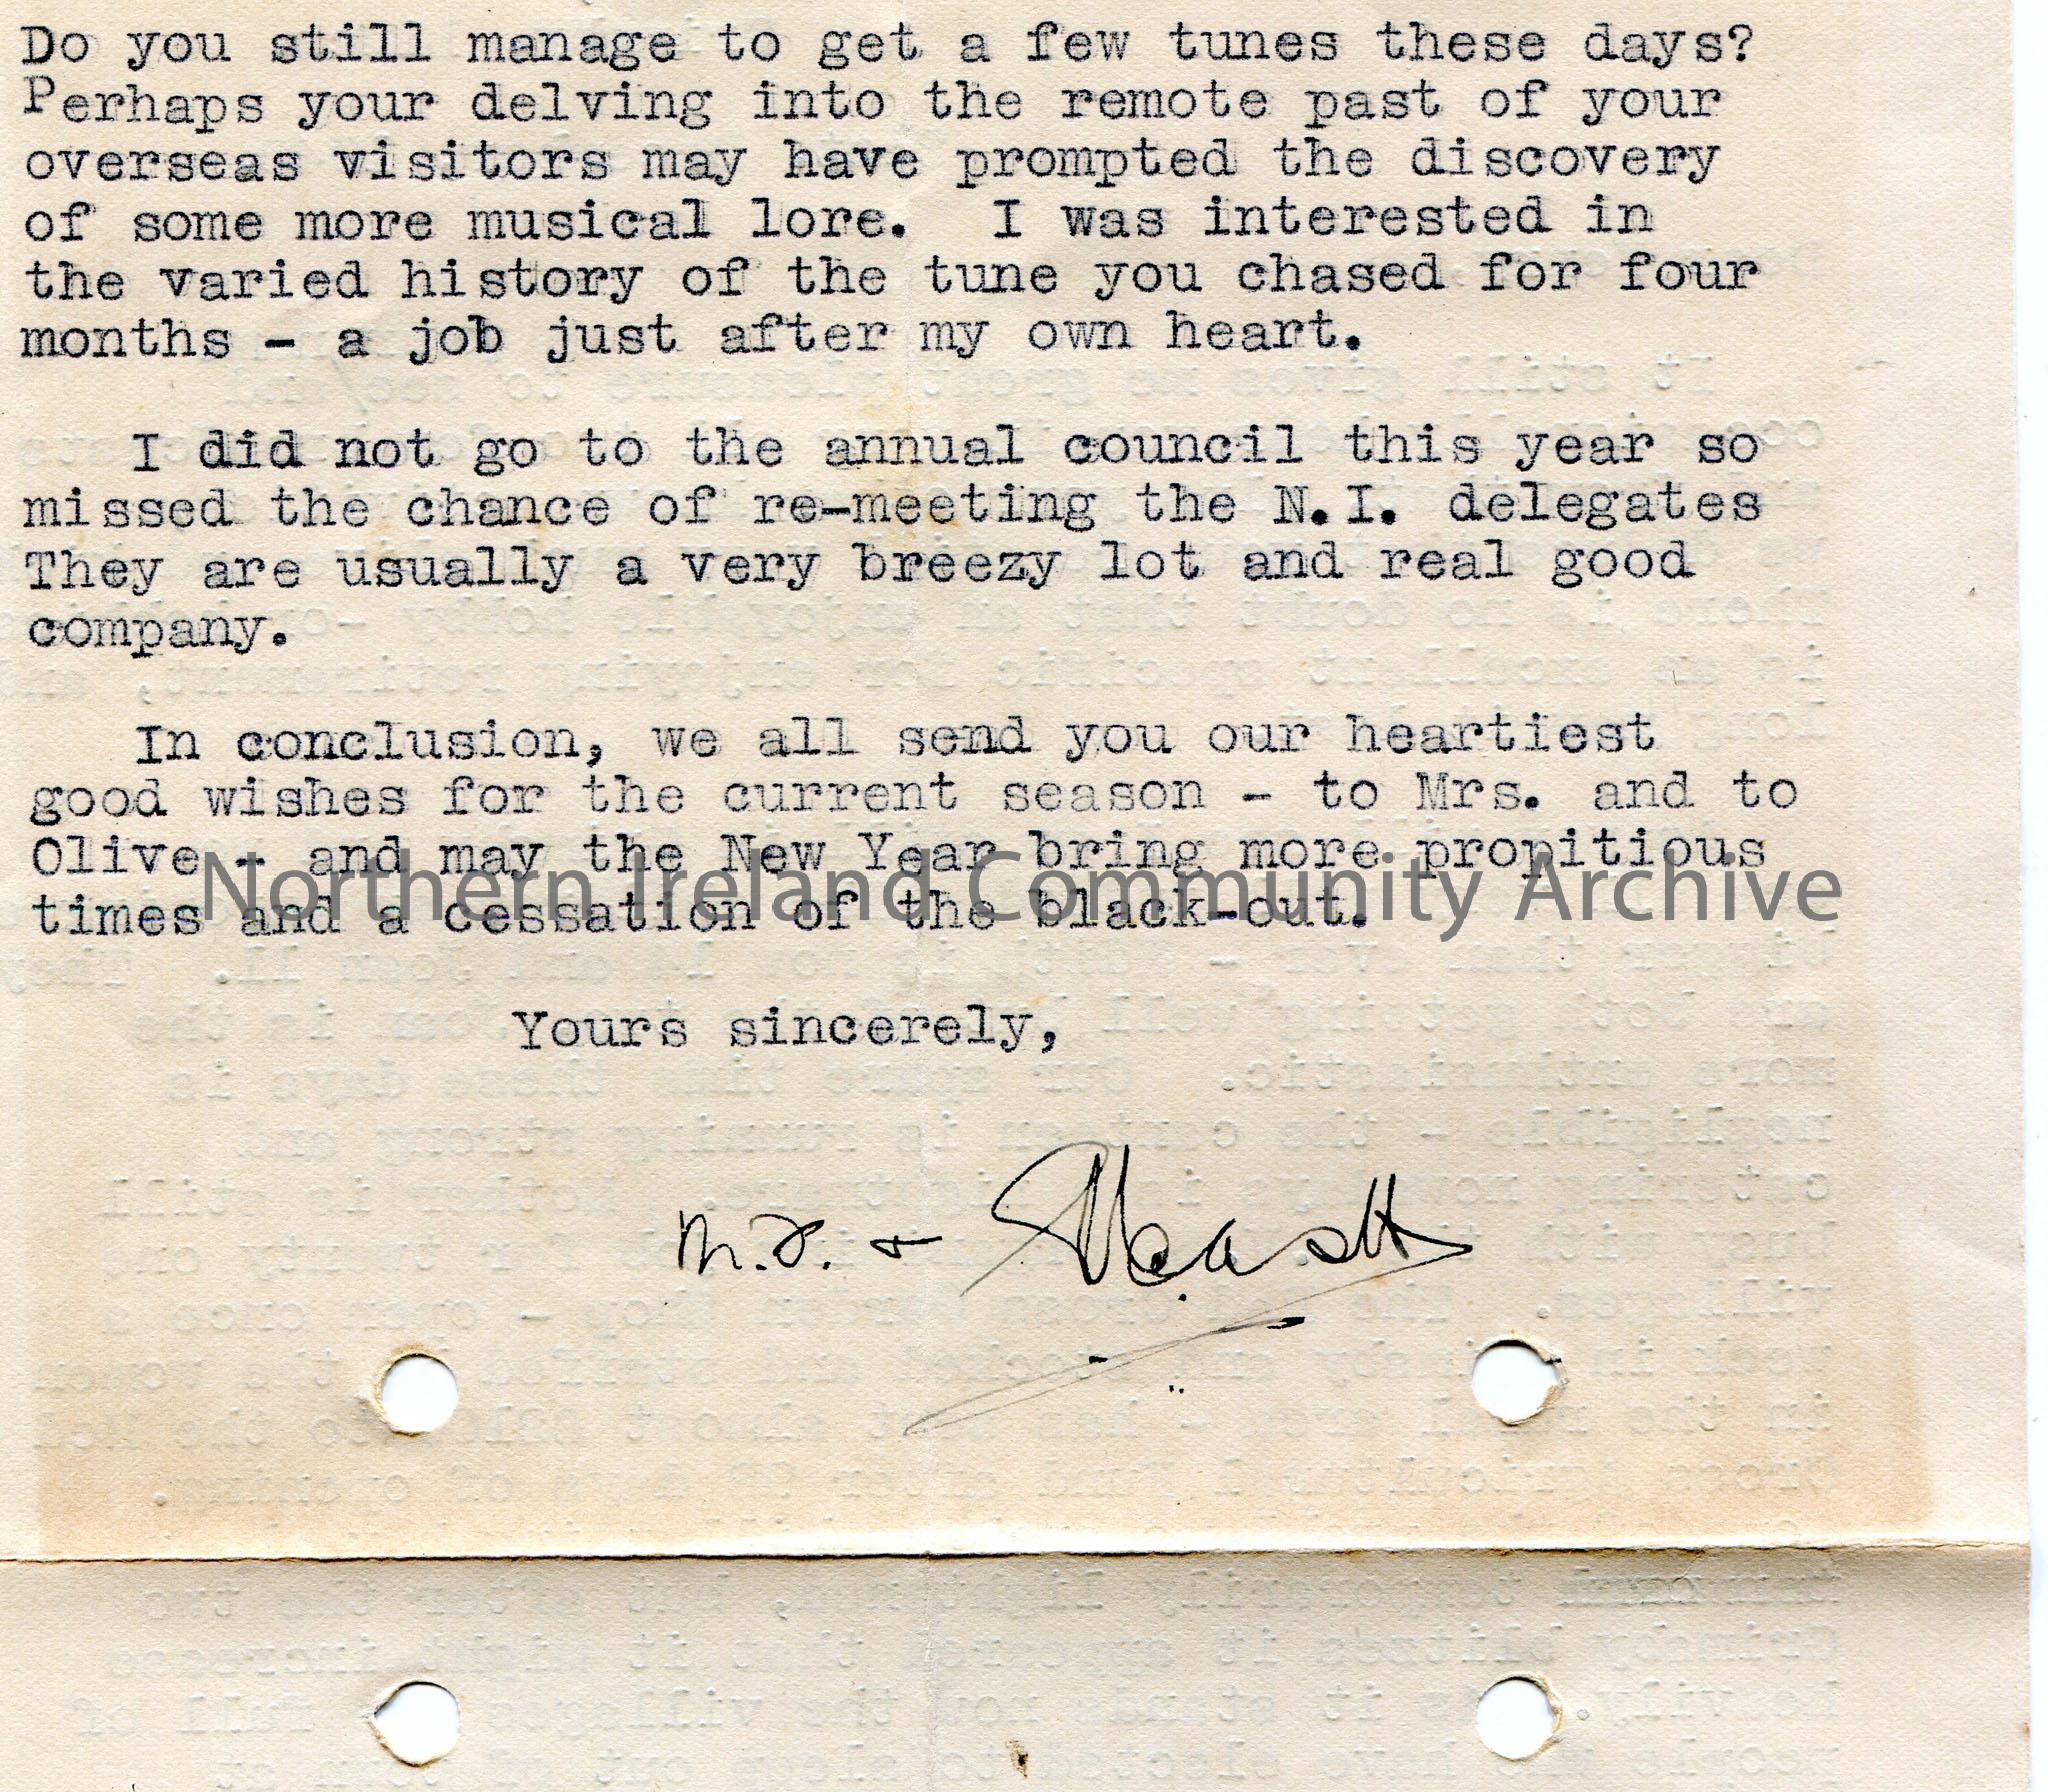 Do you still manage to get a few tunes these days?
Perhaps your delving into the remote past of your
overseas visitors may have prompted the discovery
of some more musical lore.  I was interested in
the varied history of the tune you chased for four
months - a job just after my own heart.
I did not go to the annual council this year so
missed the chance of re-meeting the N.I. delegates
They are usually a very breezy lot and real good
company.
In conclusion, we all send you our heartiest
good wishes for the current season - to Mrs. and to
Olive - and may the New Year bring more propitious
times and a cessation of the black-out.
Northern Ireland Community Archive
Yours sincerely,